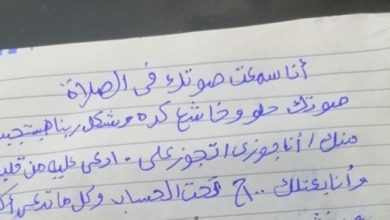 أنا سمعت صوتك فى الصلاة
صوتك حلو وخاشع كده وشكل ربنا هيستجيب
منك / أنا جوزى اتجوز على . ادعى عليه من قلبك
وأنا بعتلك ١٠٠ج تحت الحساب وكل ما تدعى أكتر